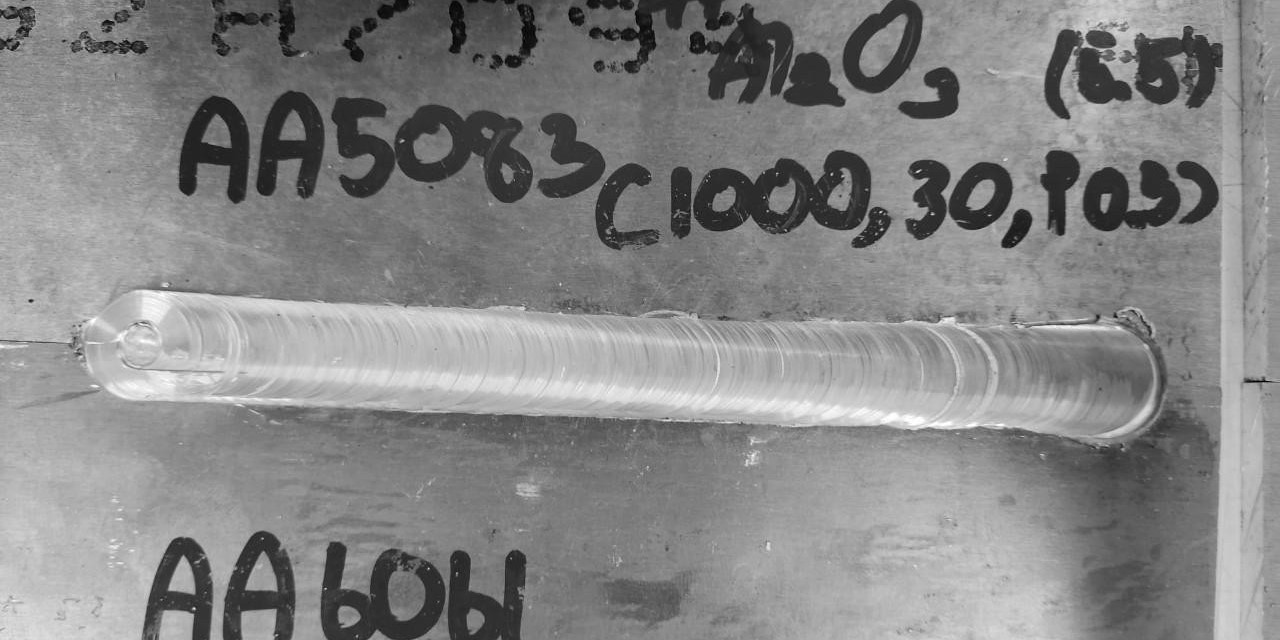 Al2O3 (65)
AA5083
(1000, 30, P03)
AA6061